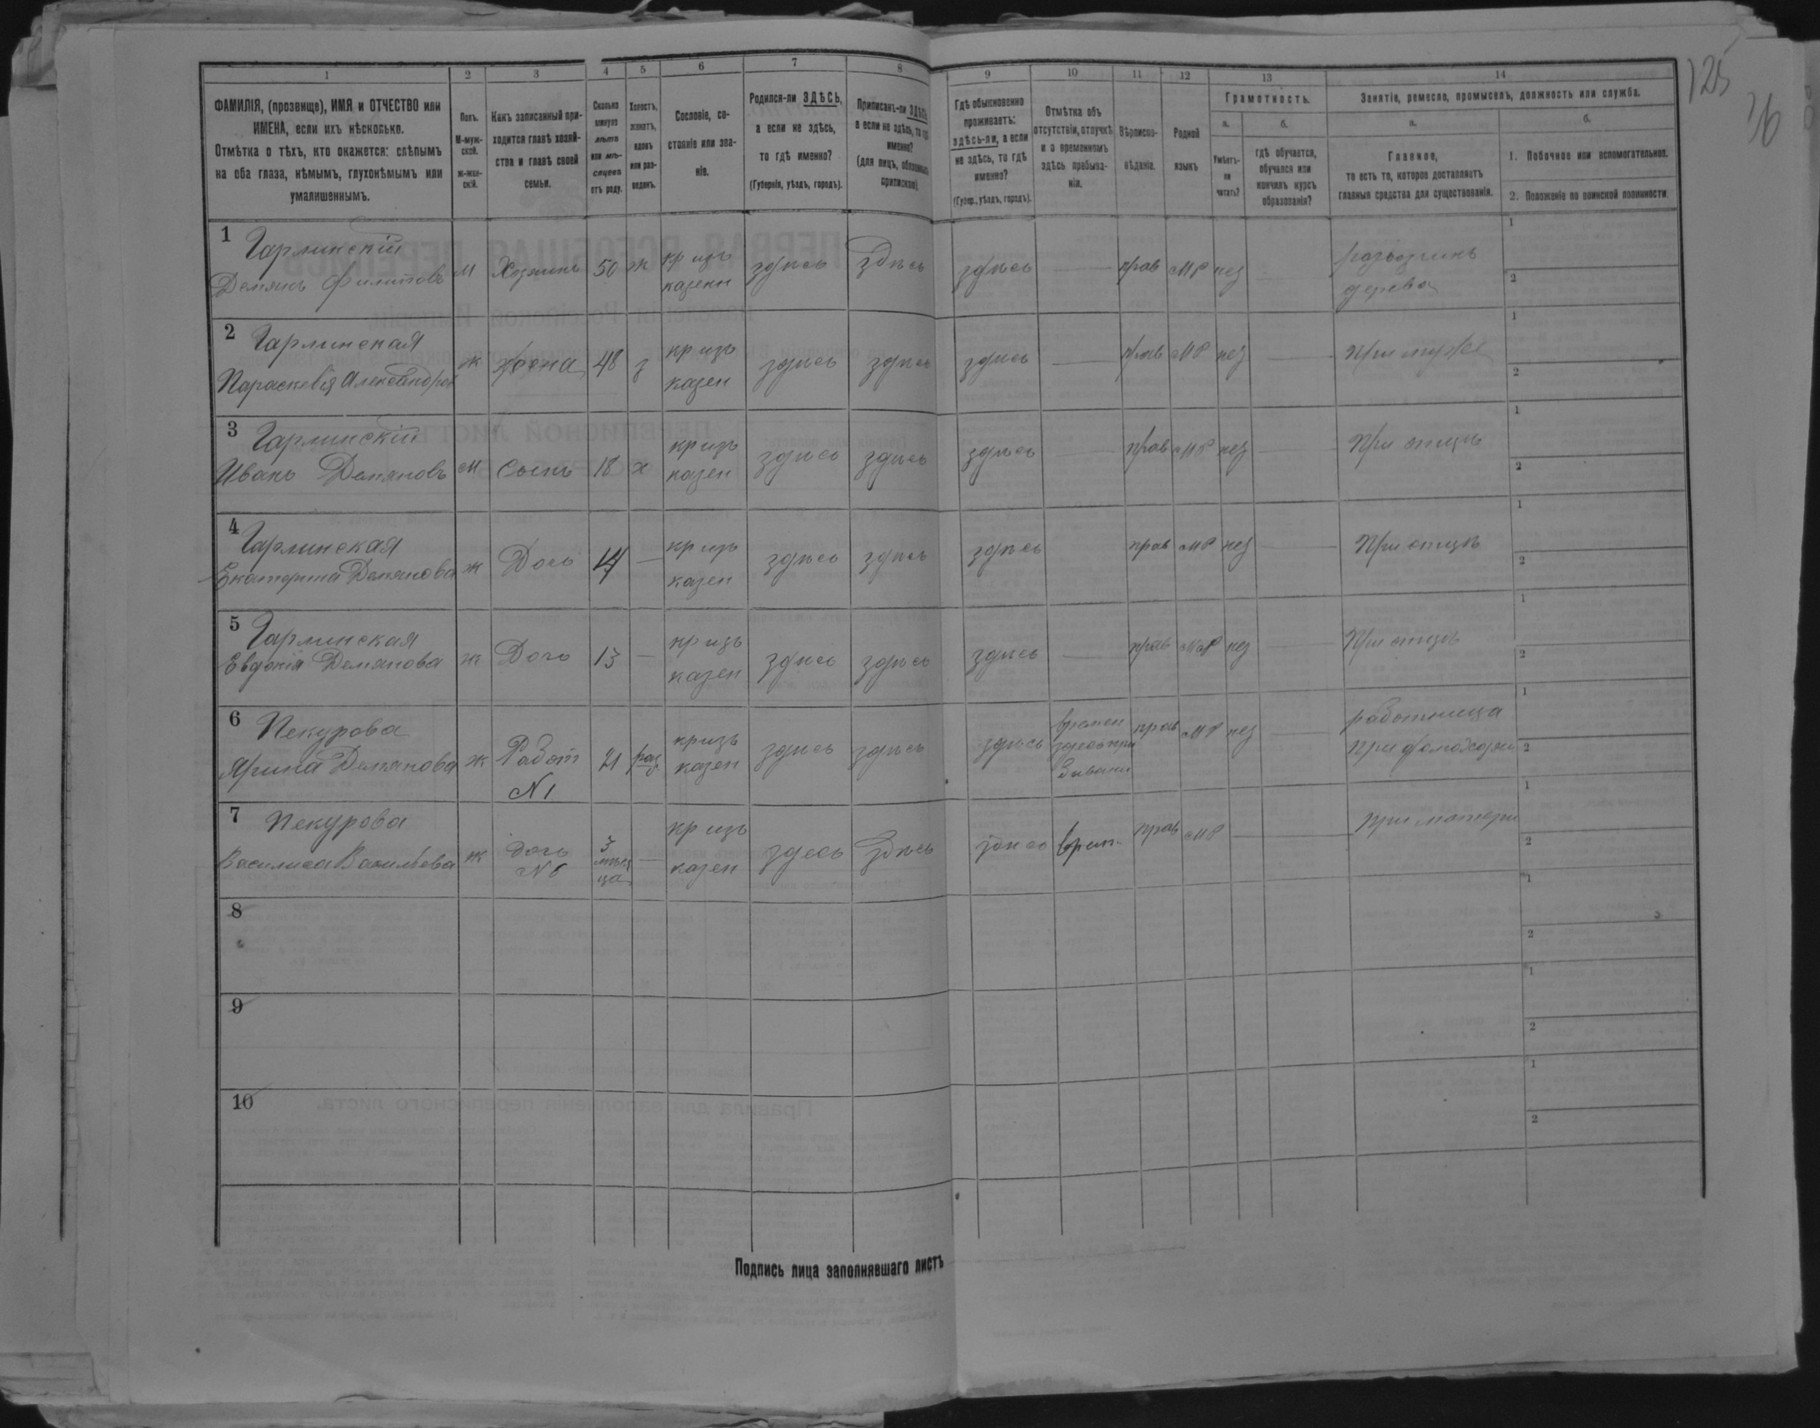 125
36
1 2 3 4 5 6 7 8 9 10 11 12 13 14
ФАМИЛІЯ, (прозвище), ИМЯ и ОТЧЕСТВО или
ИМЕНА, если ихъ нѣсколько.
Отмѣтка о тѣхъ, кто окажется: слѣпымъ
на оба глаза, нѣмымъ, глухонѣмымъ или
умалишеннымъ.
Полъ.
М-муж-
ской.
ж-жен-
скій.
Какъ записанный при-
ходится главѣ хозяй-
ства и главѣ своей
семьи.
Сколько
минуло
лѣтъ
или мѣ-
сяцевъ
отъ роду.
Холостъ,
женатъ,
вдовъ
или раз-
веденъ.
Сословіе, со-
стояніе или зва-
ніе.
Родился-ли ЗДѢСЬ,
а если не здѣсь,
то гдѣ именно?
(Губернія, уѣздъ, городъ).
Приписанъ-ли ЗДѢСЬ,
а если не здѣсь, то гдѣ
именно?
(для лицъ, обязанныхъ
припискою).
Гдѣ обыкновенно
проживаетъ:
здѣсь-ли, а если
не здѣсь, то гдѣ
именно?
(Губер., уѣздъ, городъ).
Отмѣтка объ
отсутствіи, отлучкѣ
и о временномъ
здѣсь пребыва-
ніи.
Вѣроиспо-
вѣданіе.
Родной
языкъ
Грамотность.
а.
Умѣетъ-
ли
читать?
б.
гдѣ обучается,
обучался или
кончилъ курсъ
образованія?
Занятіе, ремесло, промыселъ, должность или служба.
а.
Главное,
то есть то, которое доставляетъ
главныя средства для существованія.
б.
1. Побочное или вспомогательное.
2. Положеніе по воинской повинности.
1 Гарлинскій кр изъ разводчикъ 1
Демянъ Филиповъ М Хозяинъ 50 ж казенн здѣсь здѣсь здѣсь — прав МР нез — дерева 2
2 Гарлинская кр изъ 1
Параскевія Александров ж жена 48 з казен здѣсь здѣсь здѣсь — прав МР нез — При мужѣ 2
3 Гарлинскій кр изъ 1
Иванъ Демяновъ М Сынъ 18 х казен здѣсь здѣсь здѣсь — прав МР нез — При отцѣ 2
4 Гарлинская кр изъ 1
Екатерина Демянова ж Дочь 14 — казен здѣсь здѣсь здѣсь прав МР нез — При отцѣ 2
5 Гарлинская кр изъ 1
Евдокія Демянова ж Дочь 13 — казен здѣсь здѣсь здѣсь — прав МР нез — При отцѣ 2
6 Пекурова кр изъ времен работница 1
Ярина Демянова ж Работ 21 раз казен здѣсь здѣсь здѣсь прав МР нез — при домохозяи 2
№1
7 Пекурова кр изъ 1
Василиса Васильева ж дочь 3 мѣсяца — казен здесь здѣсь здѣсь врем. прав МР — при матери 2
№6
8 1
2
9 1
2
10 1
2
Подпись лица заполнявшаго листъ